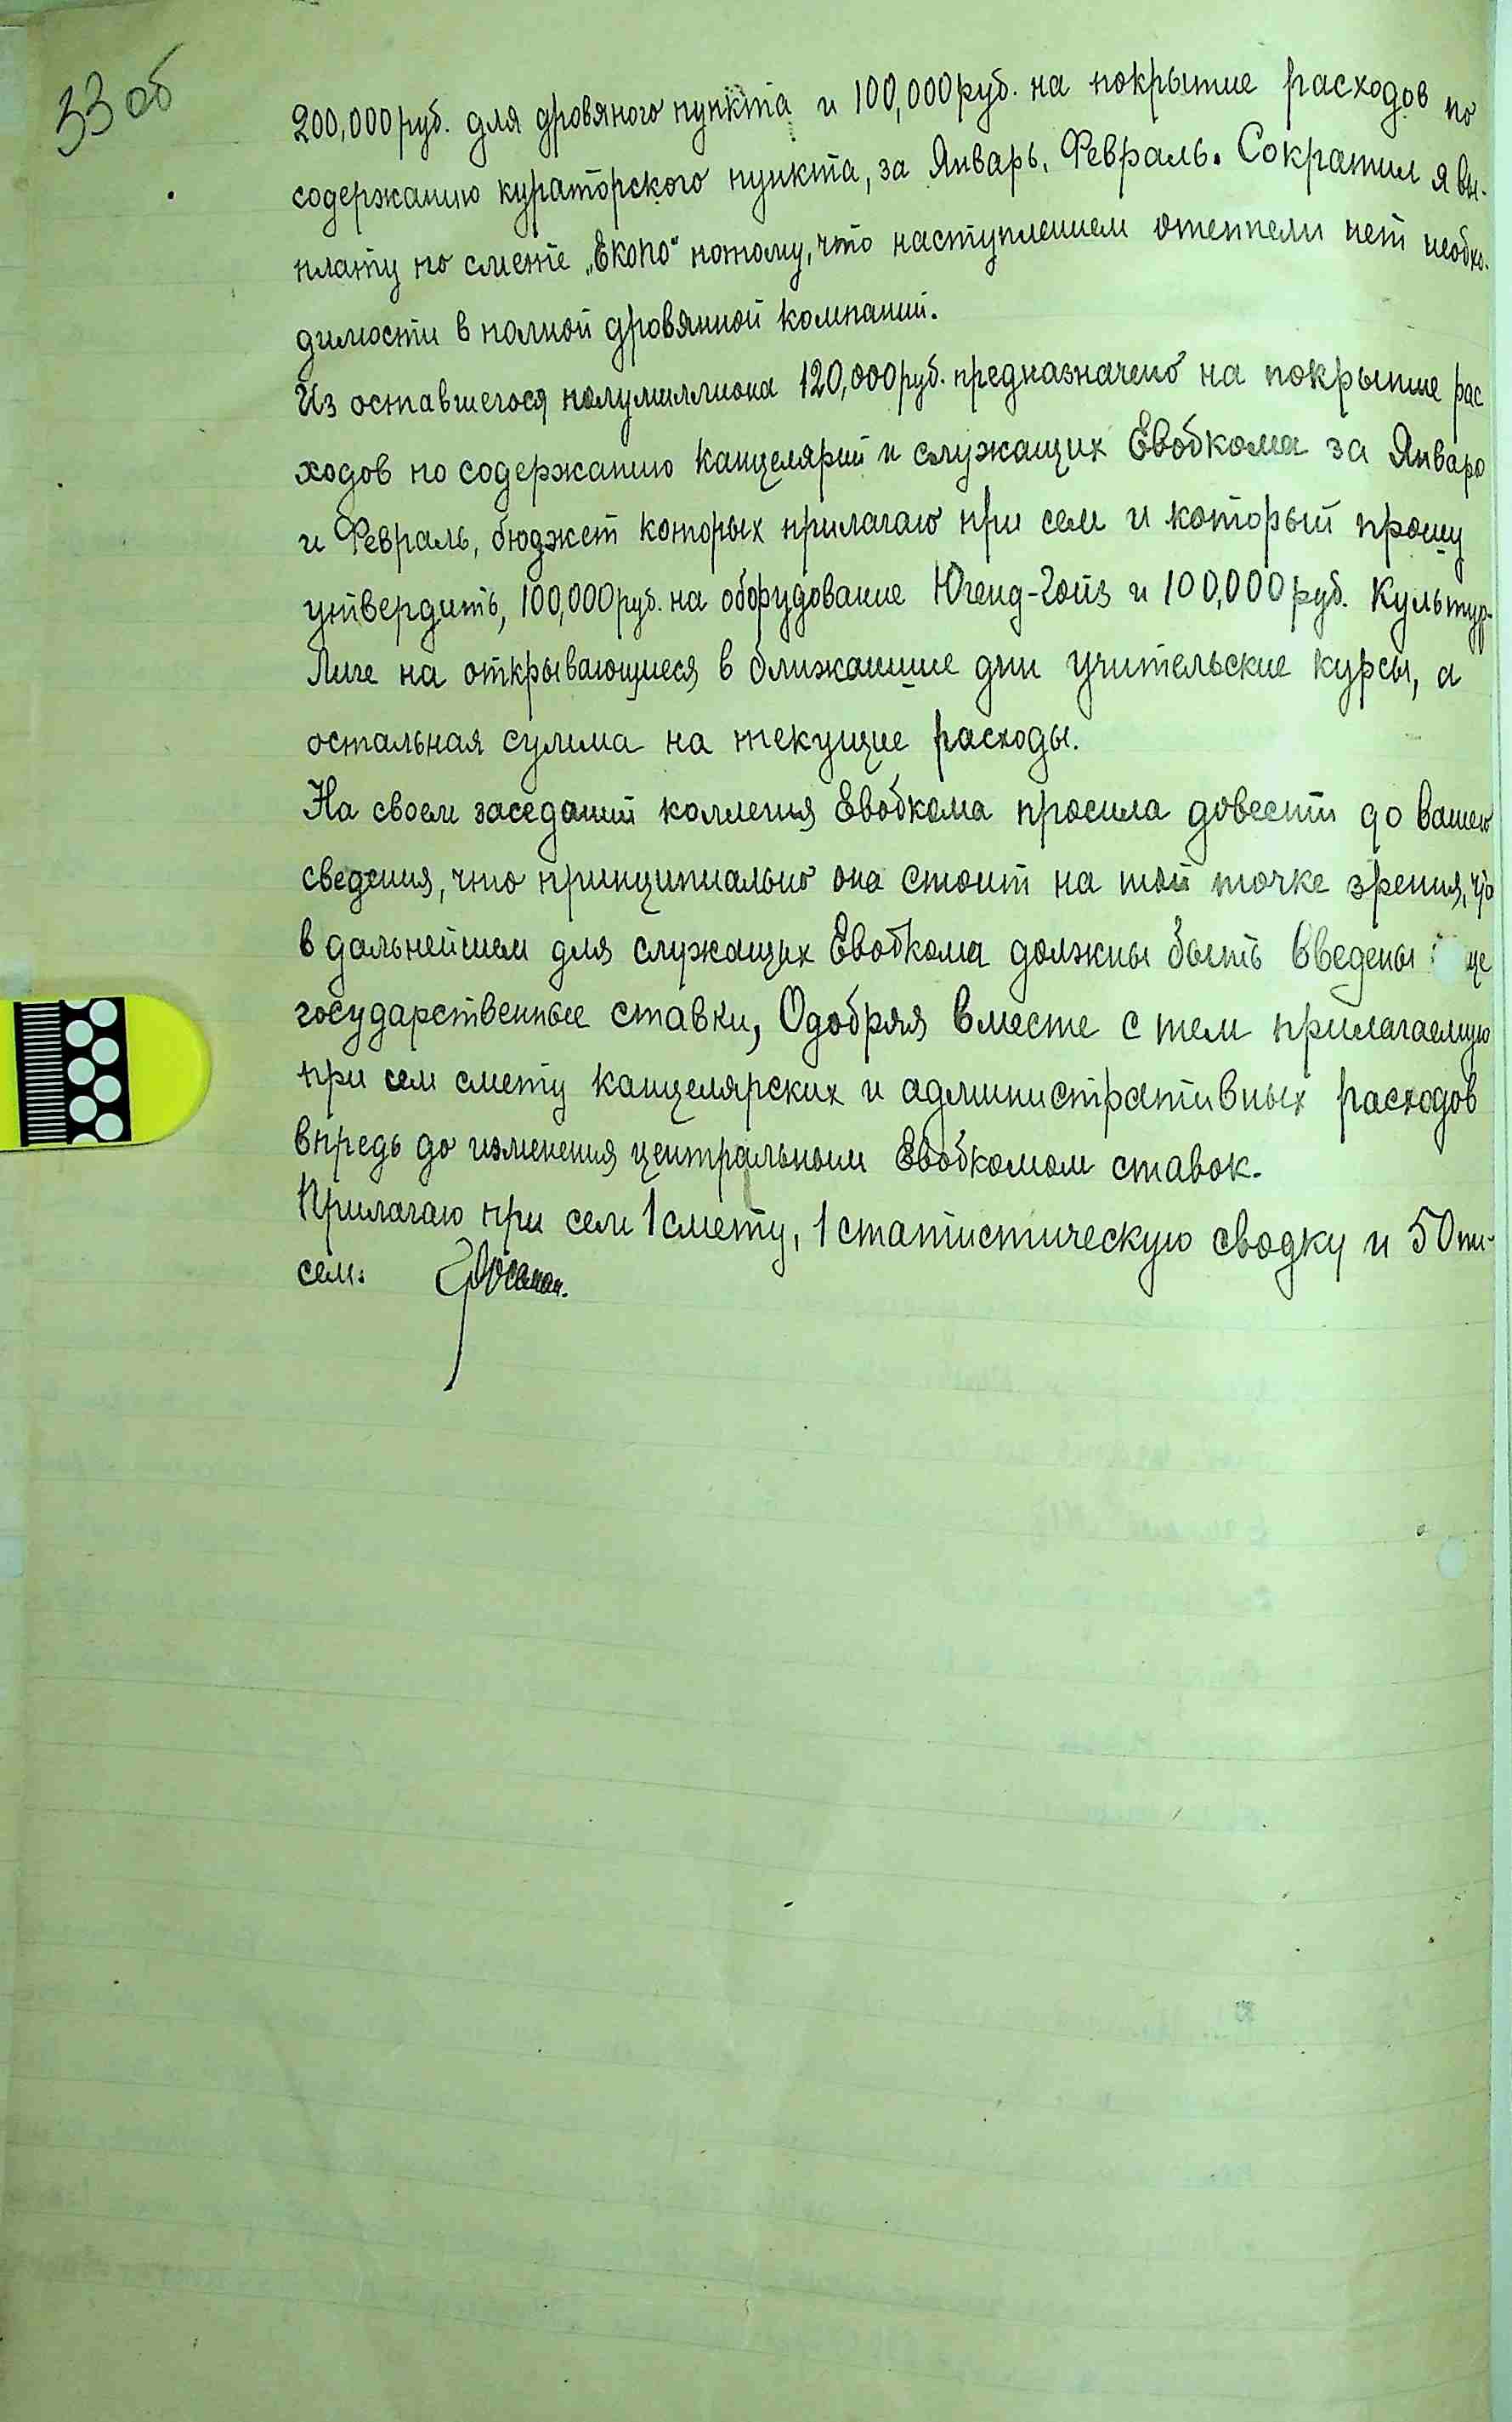 33 об
200,000 руб. для дровяного пункта и 100,000 руб. на покрытие расходов по
содержанию кураторского пункта, за Январь, Февраль. Сократил я вы-
плату по смете „Екопо“ потому, что наступлением оттепели нет необхо-
димости в полной дровянной компании.
Из оставшегося полумиллиона 120,000 руб. предназначено на покрытие рас
ходов по содержанию канцелярий и служащих Евобкома за Январь
и Февраль, бюджет которых прилагаю при сем и который прошу
утвердить, 100,000 руб. на оборудование Югенд-Гойз и 100,000 руб. Культур-
Лиге на открывающиеся в ближайшие дни учительские курсы, а
остальная сумма на текущие расходы.
На своем заседании коллегия Евобкома просила довести до вашего
сведения, что принципиально она стоит на той точке зрения, что
в дальнейшем для служащих Евобкома должны быть введены
государственные ставки, Одобряя вместе с тем прилагаемую
при сем смету канцелярских и административных расходов
впредь до изменения центральным Евобкомом ставок.
Прилагаю при сем 1 смету, 1 статистическую сводку и 50 пи-
сем.